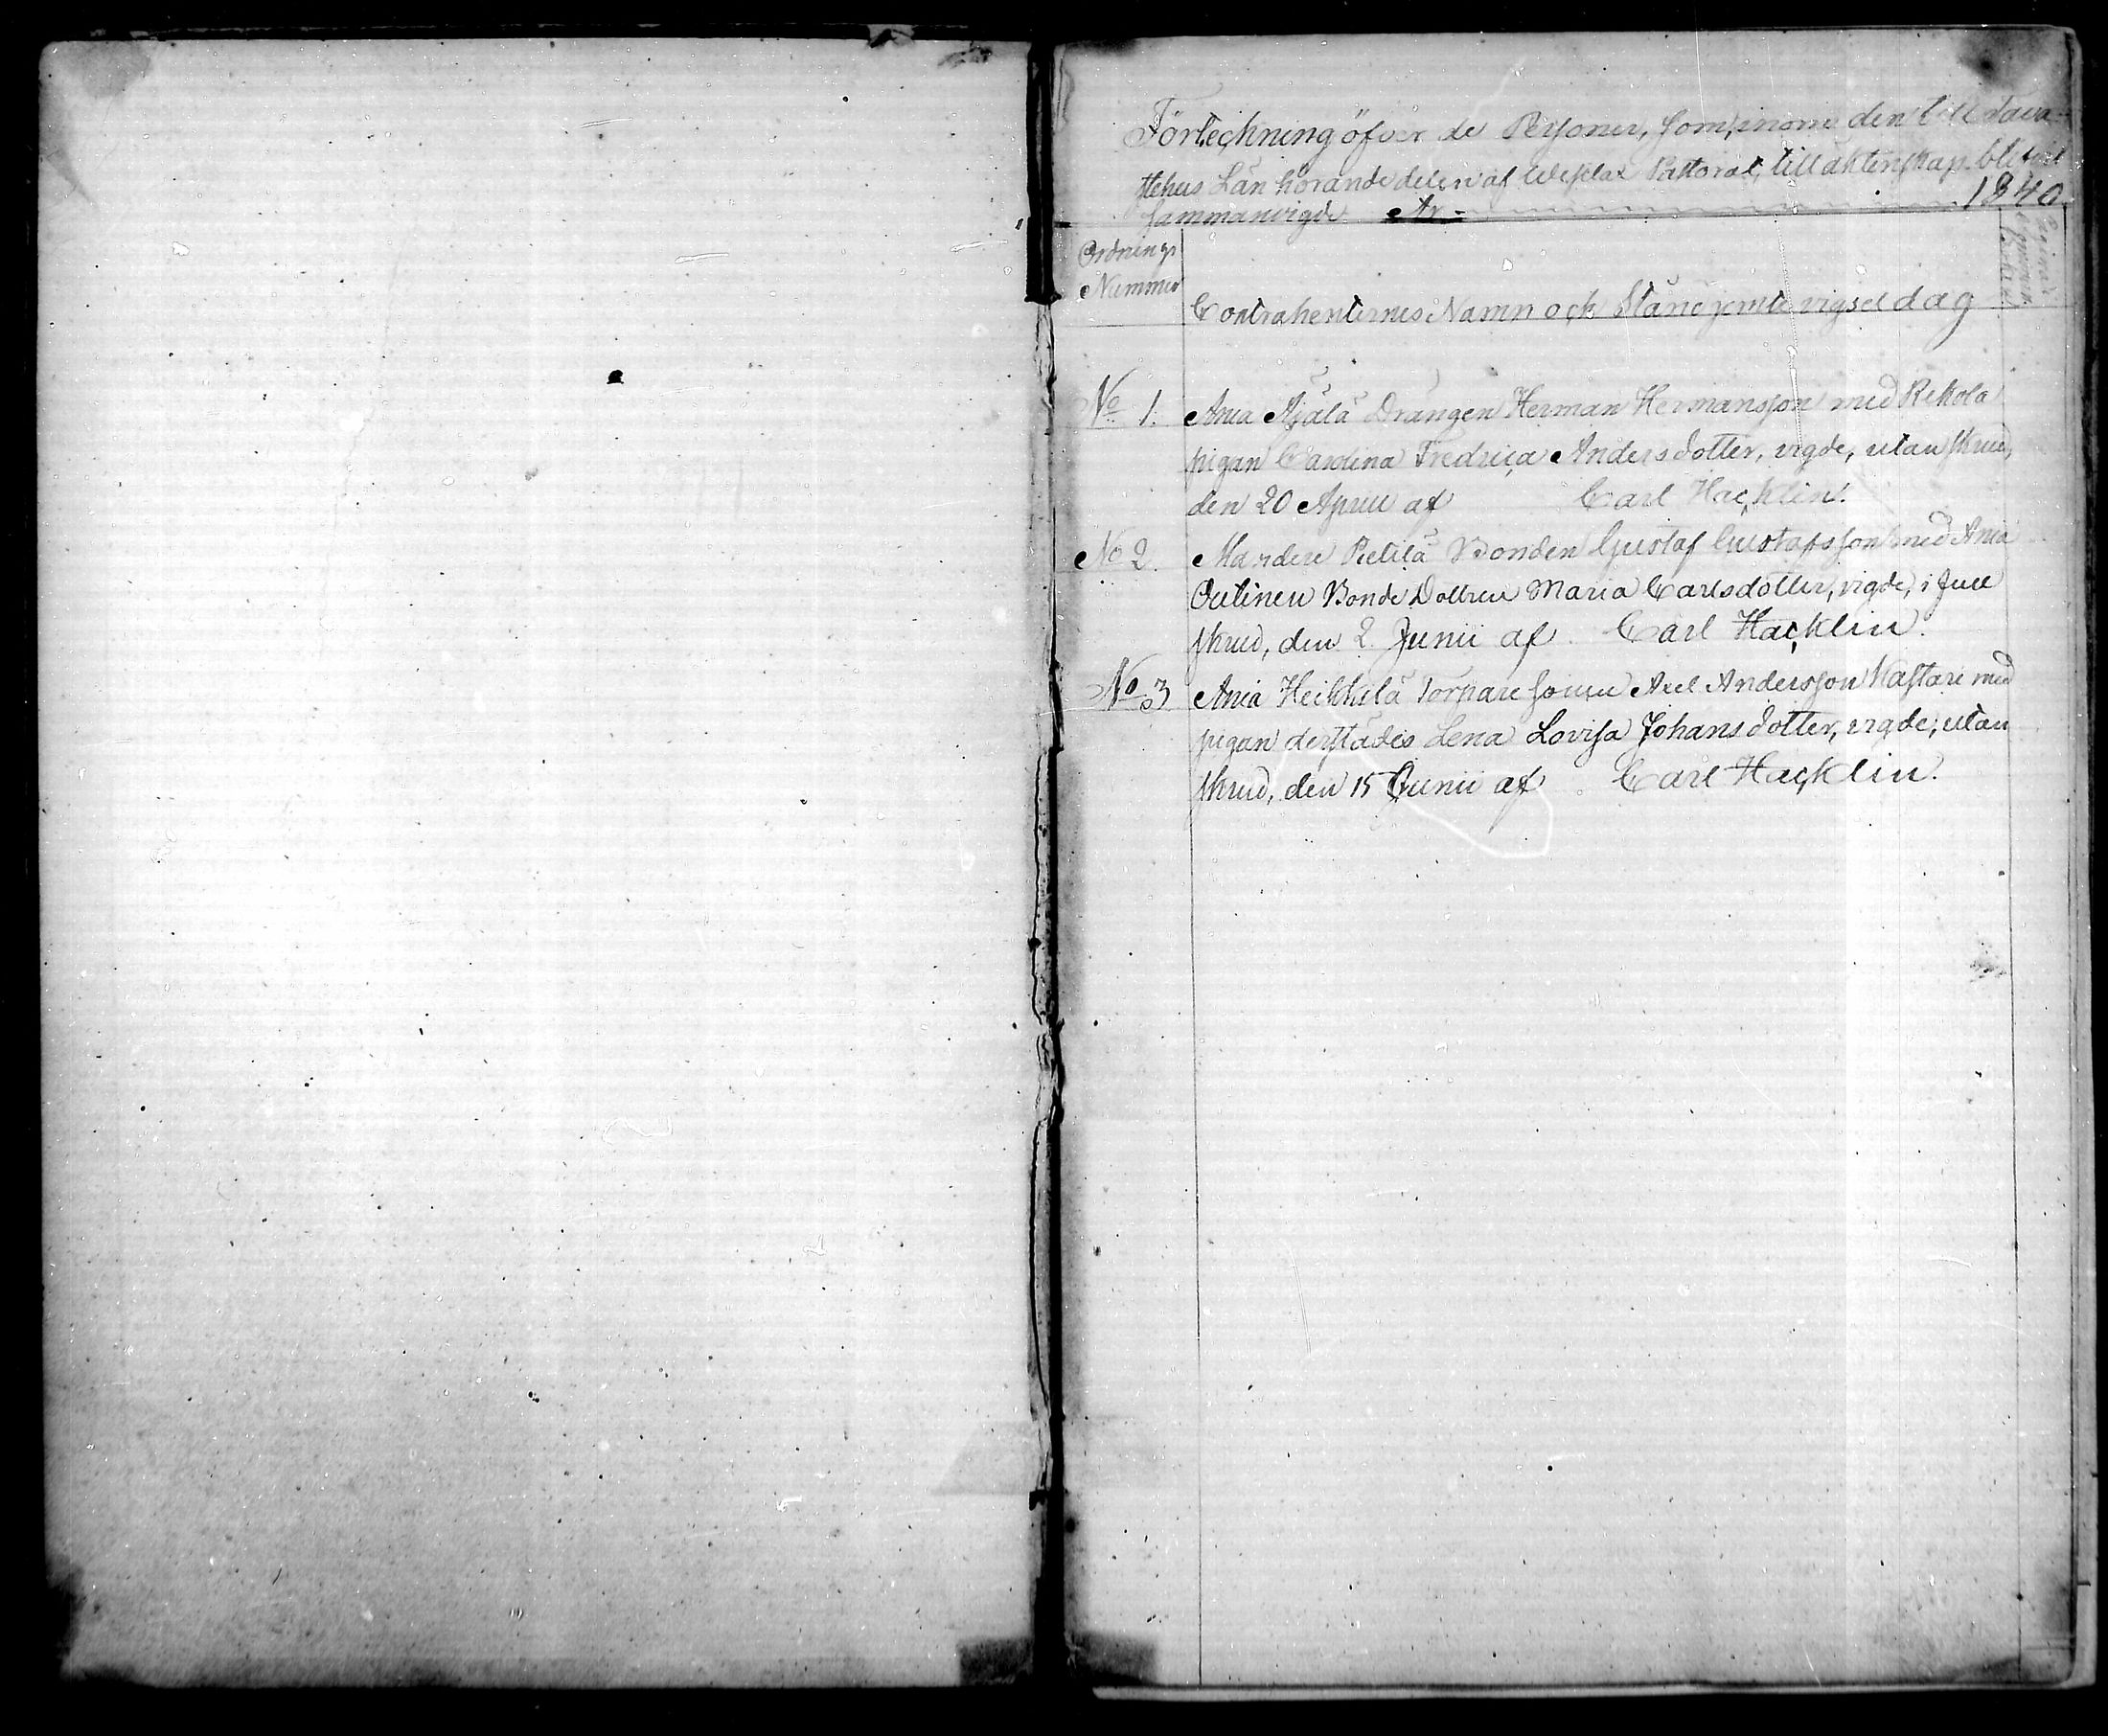 Förteckning öfver de Personer, som, inom den till Tava-
stehus Län hörande delen af Wesilax Pastorat, till äktenskap blifvit
sammanvigde År 1840.
Ordnings
Nummer
Contrahenternes Namn och Stånd jemte vigsel dag
No 1. Ania Äjälä Drängen Herman Hermansson med Rekola
pigan Carolina Fredrica Andersdotter, vigde, utan skrud,
den 20 April af Carl Hacklin.
No 2. Mandere Pietilä Bonden Gustaf Gustafsson med Ania
Outinen Bonde Dottren Maria Carlsdotter, vigde, i full
skrud, den 2 Junii af Carl Hacklin.
No 3 Ania Heikkilä Torpare sonen Axel Andersson Kastari med
pigan derstädes Lena Lovisa Johans dotter, vigde, utan
skrud, den 15 Junii af Carl Hacklin.